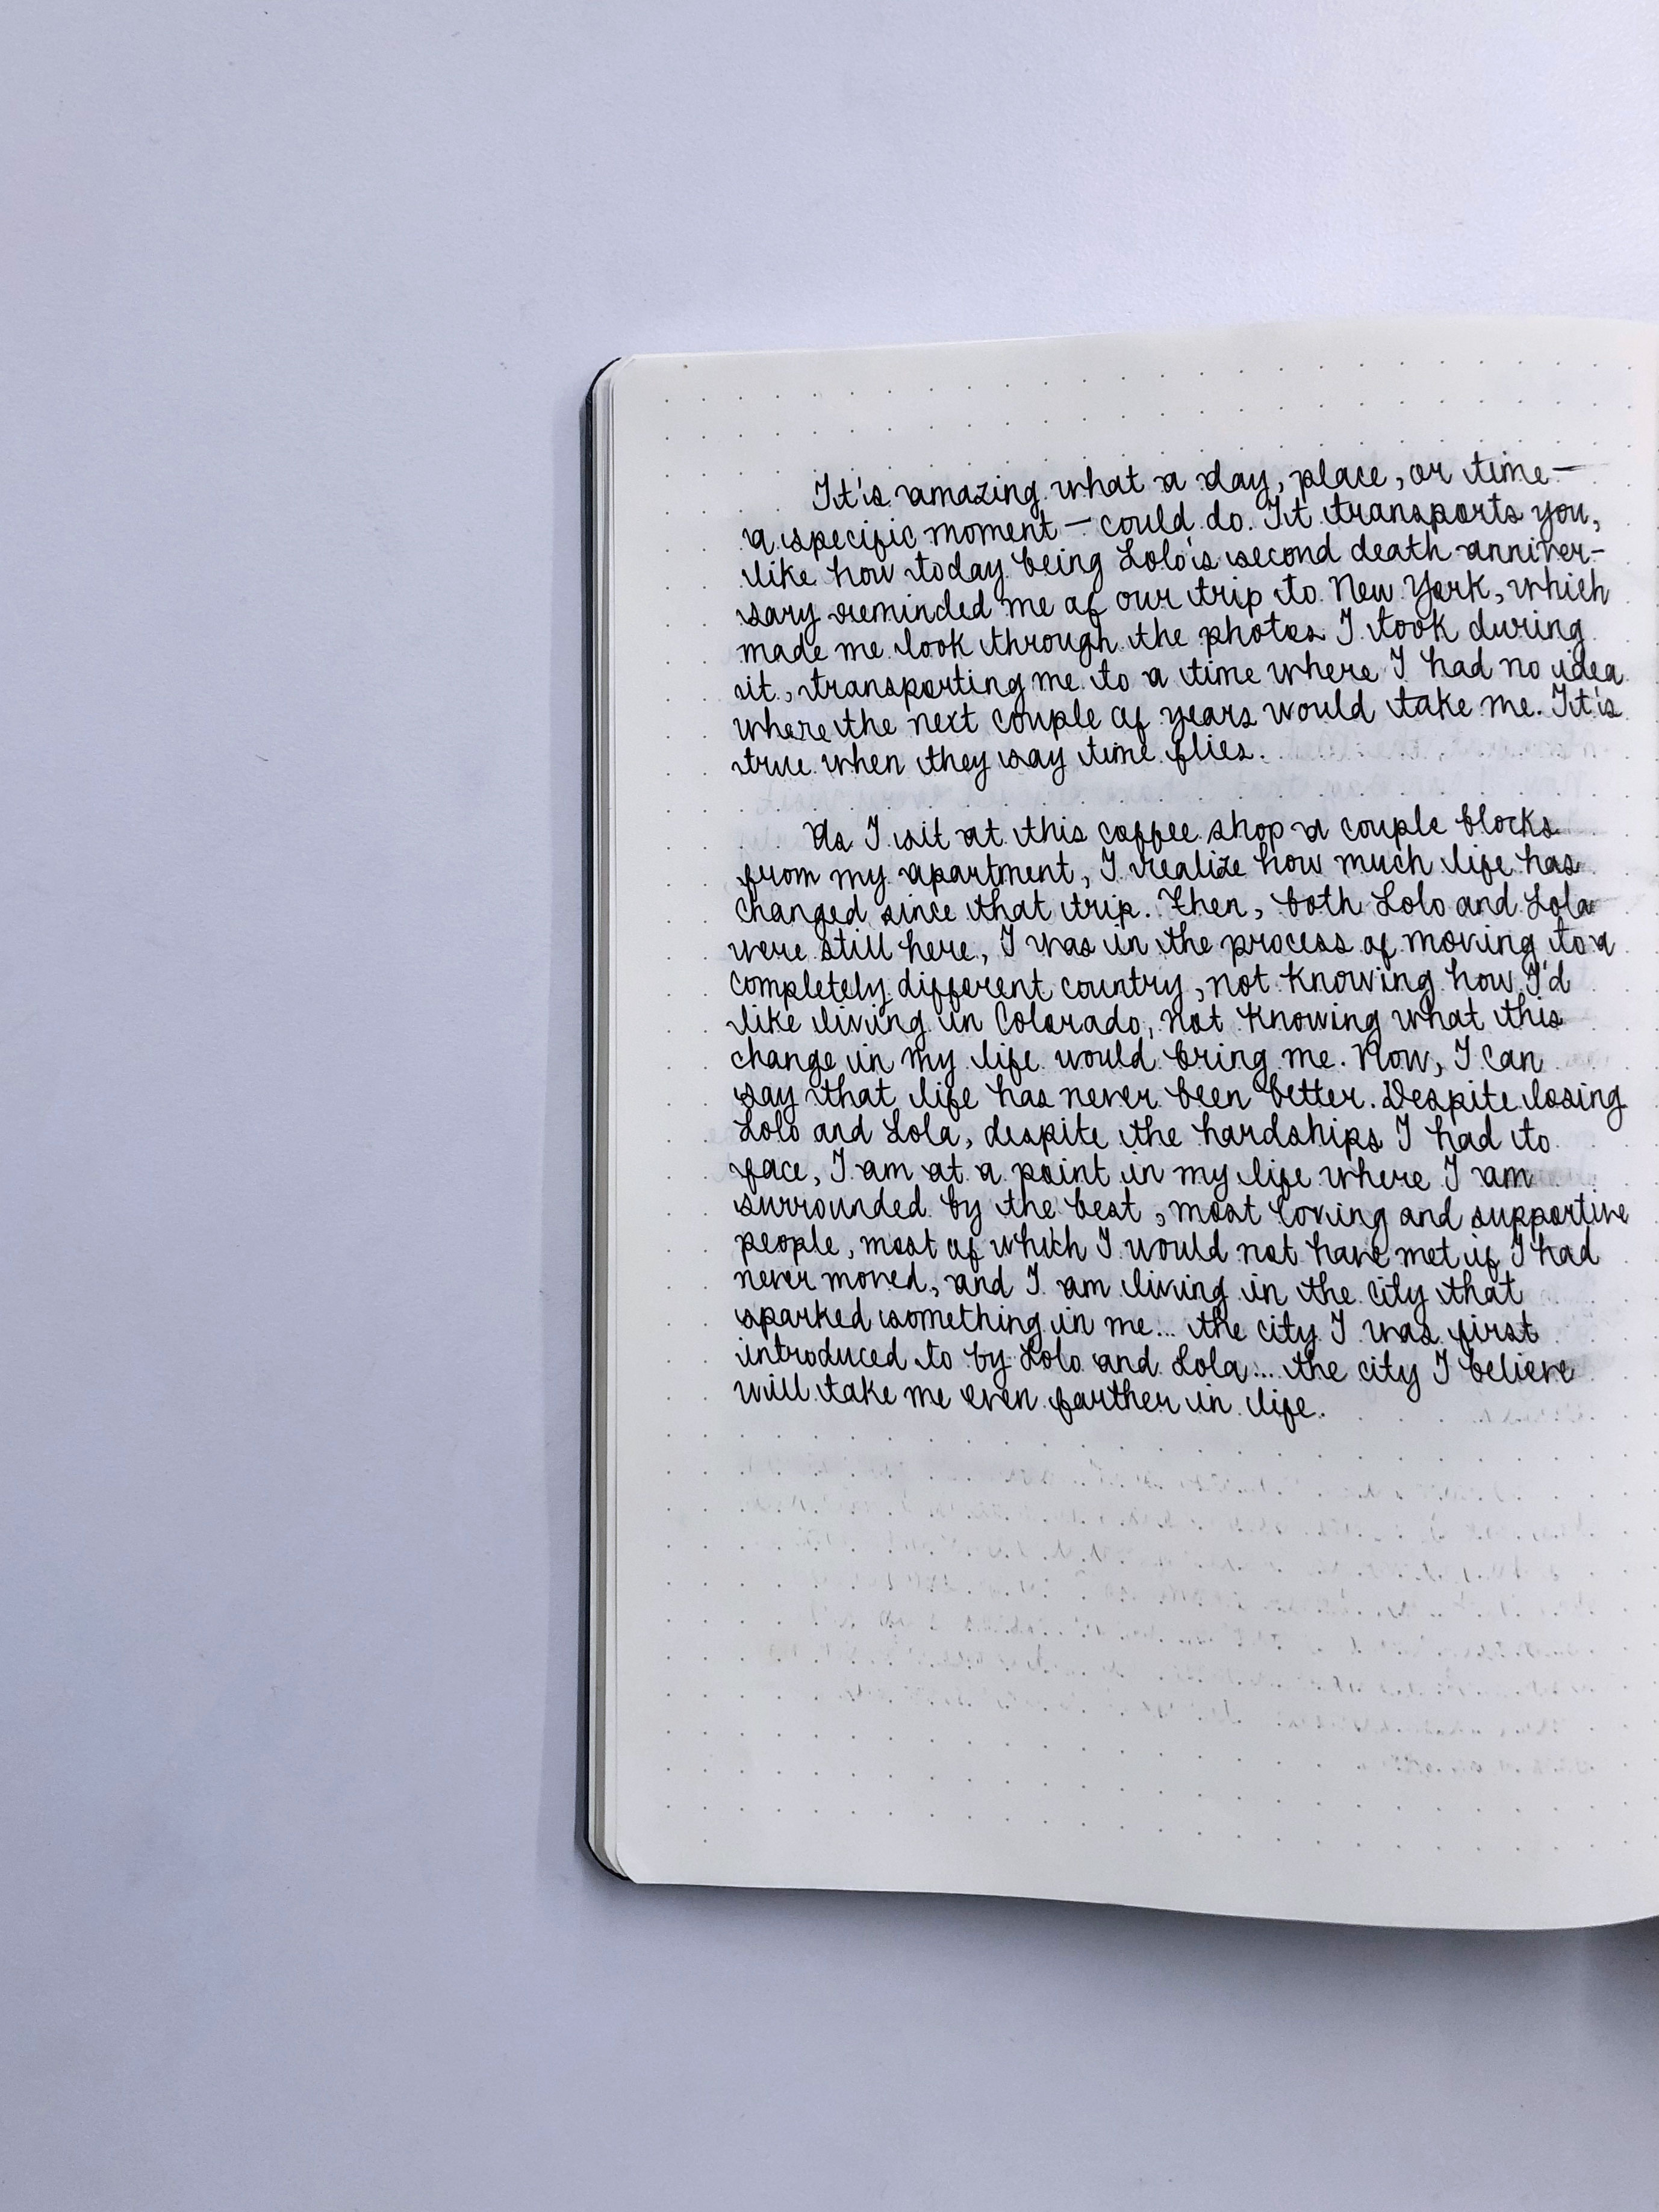 It's amazing what a day, place, or time—
a specific moment — could do. It transports you,
like how today being Lolo's second death anniver-
sary reminded me of our trip to New York, which
made me look through the photos I took during
it, transporting me to a time where I had no idea
where the next couple of years would take me. It's
true when they say time flies.
As I sit at this coffee shop a couple blocks
from my apartment, I realize how much life has
changed since that trip. Then, both Lolo and Lola
were still here, I was in the process of moving to a
completely different country, not knowing how I'd
like living in Colorado, not knowing what this
change in my life would bring me. Now, I can
say that life has never been better. Despite losing
Lolo and Lola, despite the hardships I had to
face, I am at a point in my life where I am
surrounded by the best, most loving and supportive
people, most of which I would not have met if I had
never moved, and I am living in the city that
sparked something in me... the city I was first
introduced to by Lolo and Lola... the city I believe
will take me even farther in life.